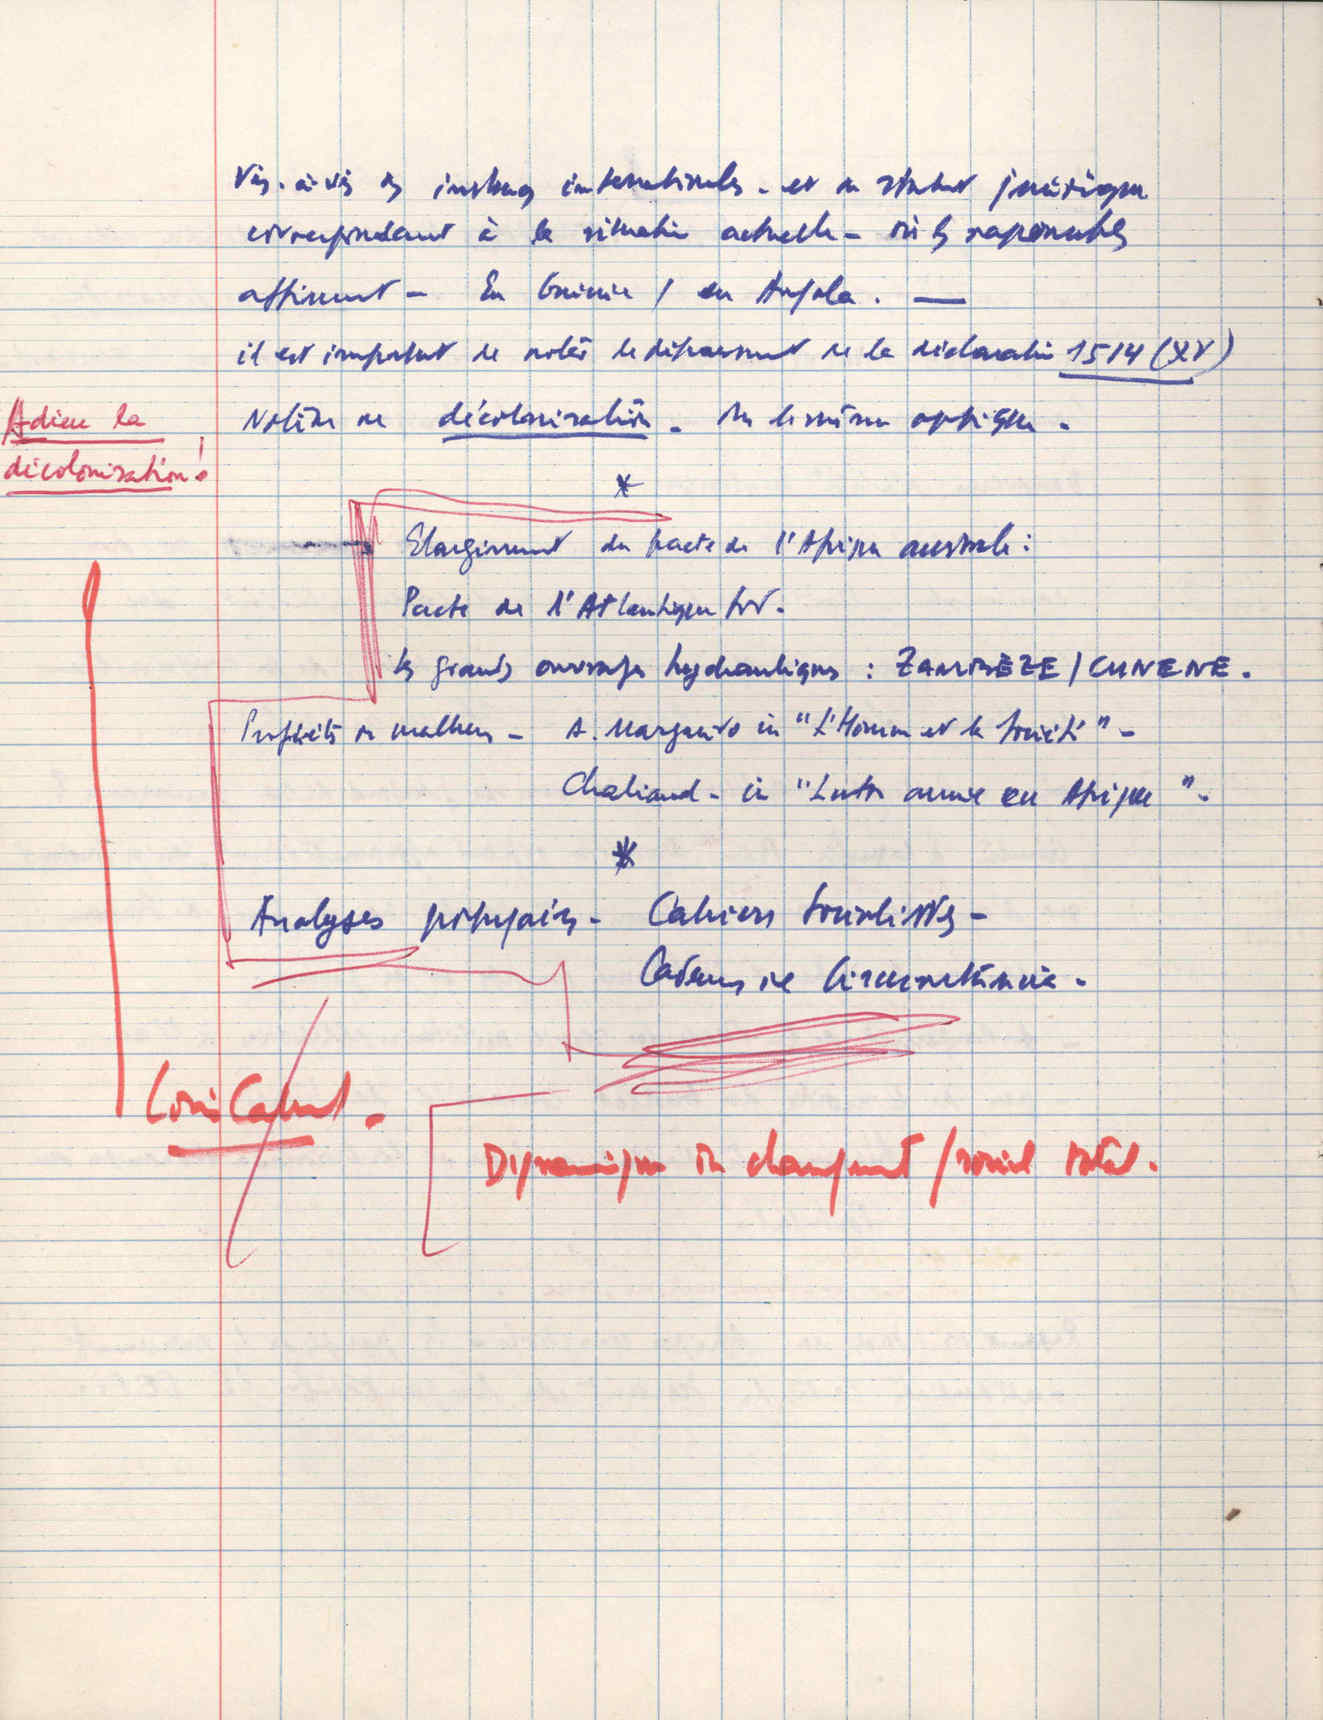 Vis-à-vis des instances internationales - et du statut juridique
correspondant à la situation actuelle - où les responsables
affirment - En Guinée / en Angola. —
il est important de noter le dépassement de la déclaration 1514 (XV)
Notion de décolonisation - de même optique -
Adieu la
décolonisation !
*
Elargissement du pacte de l'Afrique australe :
Pacte de l'Atlantique Sud -
les grands ouvrages hydrauliques : ZAMBÈZE / CUNENE.
de malheur - A. Margarido in "L'Homme et la Société" -
Chaliand - in "Lutte armée en Afrique" -
*
Analyses portugaises - Cahiers Socialistes -
Cadernos de Circunstância -
Dynamique du changement / social total.